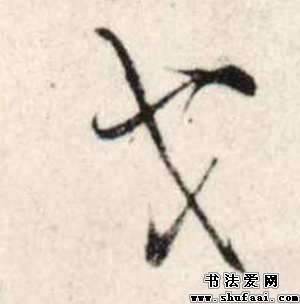 戈
书法爱网
www.shufaai.com